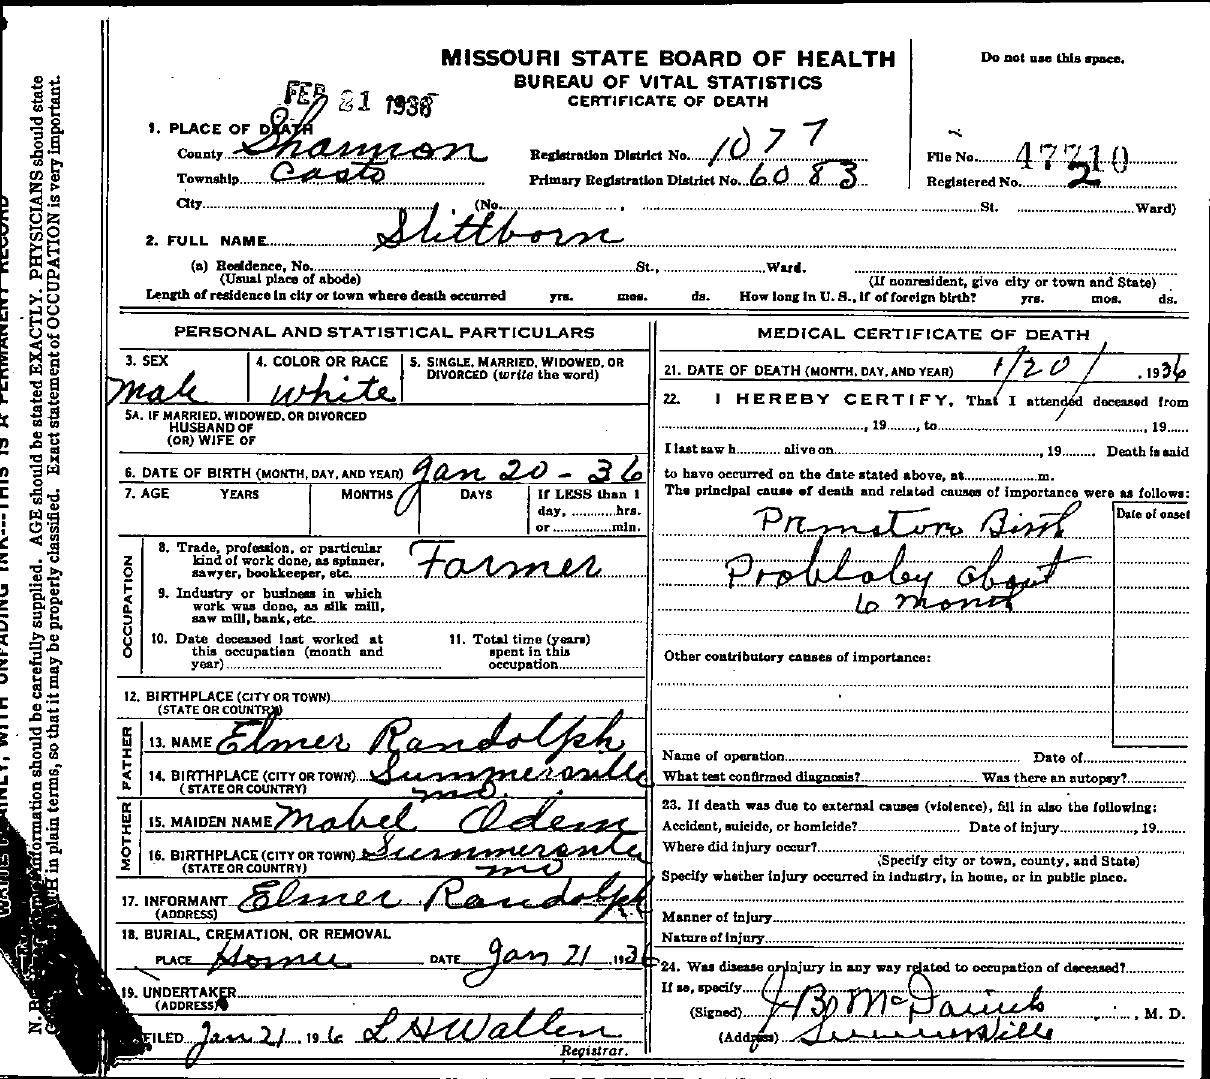 MISSOURI STATE BOARD OF HEALTH
BUREAU OF VITAL STATISTICS
CERTIFICATE OF DEATH
Do not use this space.
FEB 21 1936
1. PLACE OF DEATH
County Shannon
Registration District No. 1077
File No. 47210
Township Casto
Primary Registration District No. 6083
Registered No. 2
City (No. , St. Ward)
2. FULL NAME Stillborn
(a) Residence, No. St., Ward.
(Usual place of abode) (If nonresident, give city or town and State)
Length of residence in city or town where death occurred yrs. mos. ds. How long in U. S., if of foreign birth? yrs. mos. ds.
PERSONAL AND STATISTICAL PARTICULARS
3. SEX
male
4. COLOR OR RACE
white
5. SINGLE, MARRIED, WIDOWED, OR
DIVORCED (write the word)
5A. IF MARRIED, WIDOWED, OR DIVORCED
HUSBAND OF
(OR) WIFE OF
6. DATE OF BIRTH (MONTH, DAY, AND YEAR) Jan 20 - 36
7. AGE YEARS MONTHS DAYS If LESS than 1
day, hrs.
or min.
OCCUPATION
8. Trade, profession, or particular
kind of work done, as spinner,
sawyer, bookkeeper, etc. Farmer
9. Industry or business in which
work was done, as silk mill,
saw mill, bank, etc.
10. Date deceased last worked at
this occupation (month and
year)
11. Total time (years)
spent in this
occupation
12. BIRTHPLACE (CITY OR TOWN)
(STATE OR COUNTRY)
FATHER
13. NAME Elmer Randolph
14. BIRTHPLACE (CITY OR TOWN) Summersville
(STATE OR COUNTRY) mo.
MOTHER
15. MAIDEN NAME Mabel Odem
16. BIRTHPLACE (CITY OR TOWN) Summersville
(STATE OR COUNTRY) mo
17. INFORMANT Elmer Randolph
(ADDRESS)
18. BURIAL, CREMATION, OR REMOVAL
PLACE DATE Jan 21 , 1936
19. UNDERTAKER
(ADDRESS)
FILED Jan 21 , 1936 L H Wallen
Registrar.
MEDICAL CERTIFICATE OF DEATH
21. DATE OF DEATH (MONTH, DAY, AND YEAR) 1/20/ , 1936
22. I HEREBY CERTIFY, That I attended deceased from
, 19 , to , 19
I last saw h alive on , 19 Death is said
to have occurred on the date stated above, at m.
The principal cause of death and related causes of importance were as follows:
Date of onset
Prmature Birth
Probblaby about
6 month
Other contributory causes of importance:
Name of operation Date of
What test confirmed diagnosis? Was there an autopsy?
23. If death was due to external causes (violence), fill in also the following:
Accident, suicide, or homicide? Date of injury , 19
Where did injury occur?
(Specify city or town, county, and State)
Specify whether injury occurred in industry, in home, or in public place.
Manner of injury
Nature of injury
24. Was disease or injury in any way related to occupation of deceased?
If so, specify
(Signed) McDaniels , M. D.
(Address) Summersville
information should be carefully supplied. AGE should be stated EXACTLY. PHYSICIANS should state
in plain terms, so that it may be properly classified. Exact statement of OCCUPATION is very important.